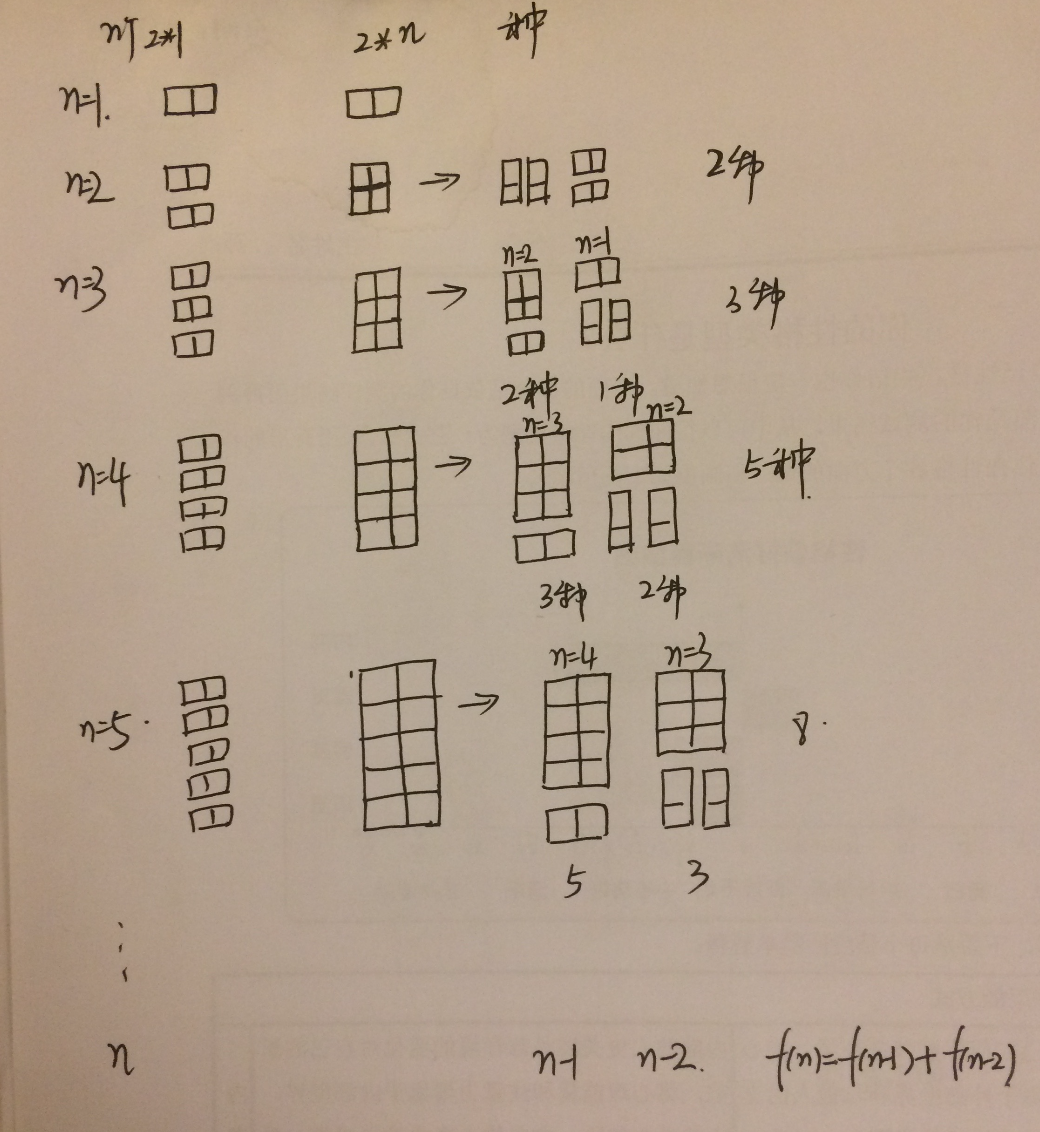 n个 2*1 2*n 种
n=1.
n=2 2种
n=3 n=2 n=1 3种
2种 1种
n=4 n=3 n=2 5种.
3种 2种
n=5. n=4 n=3 8.
5 3
n n-1 n-2. f(n)=f(n-1)+f(n-2)